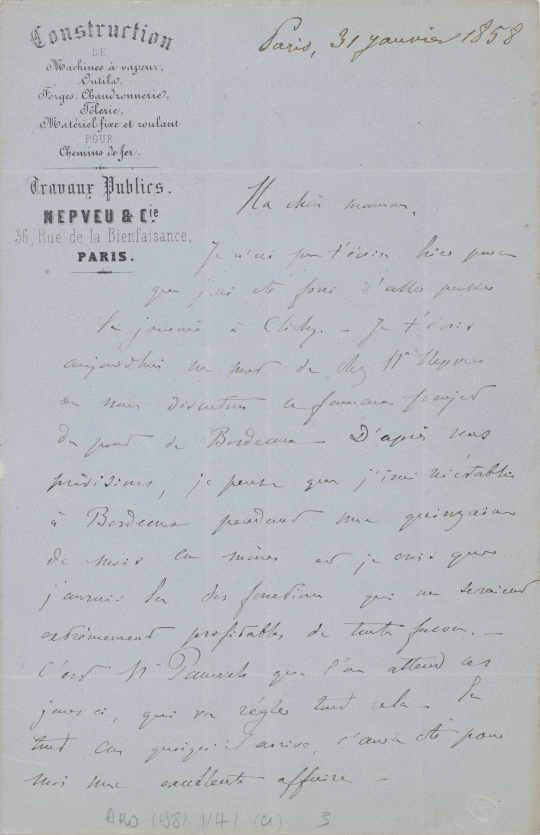 Construction
DE
Machines à vapeur,
Outils,
Forges, Chaudronnerie,
Tôlerie,
Matériel fixe et roulant
POUR
Chemins de fer.
Travaux Publics.
NEPVEU & Cie
36, Rue de la Bienfaisance,
PARIS.
Paris, 31 janvier 1858
Ma chère maman,
Je n'ai pu t'écrire hier parce
que j'ai été forcé d'aller passer
la journée à Clichy. - Je t'écris
aujourd'hui un mot de chez Mr Nepveu
où nous discutons ce fameux projet
du pont de Bordeaux - D'après nos
prévisions, je pense que j'irai
à Bordeaux pendant une quinzaine
de mois au moins et je crois que
j'aurais là des fonctions qui me seraient
extrêmement profitables de toute façon. -
C'est Mr Pauwels que l'on attend ces
jours ci, qui va régler tout cela - En
tout cas quoiqu'il arrive, ç'aura été pour
moi une excellente affaire -
ARO 1981 1/41 (a) 3